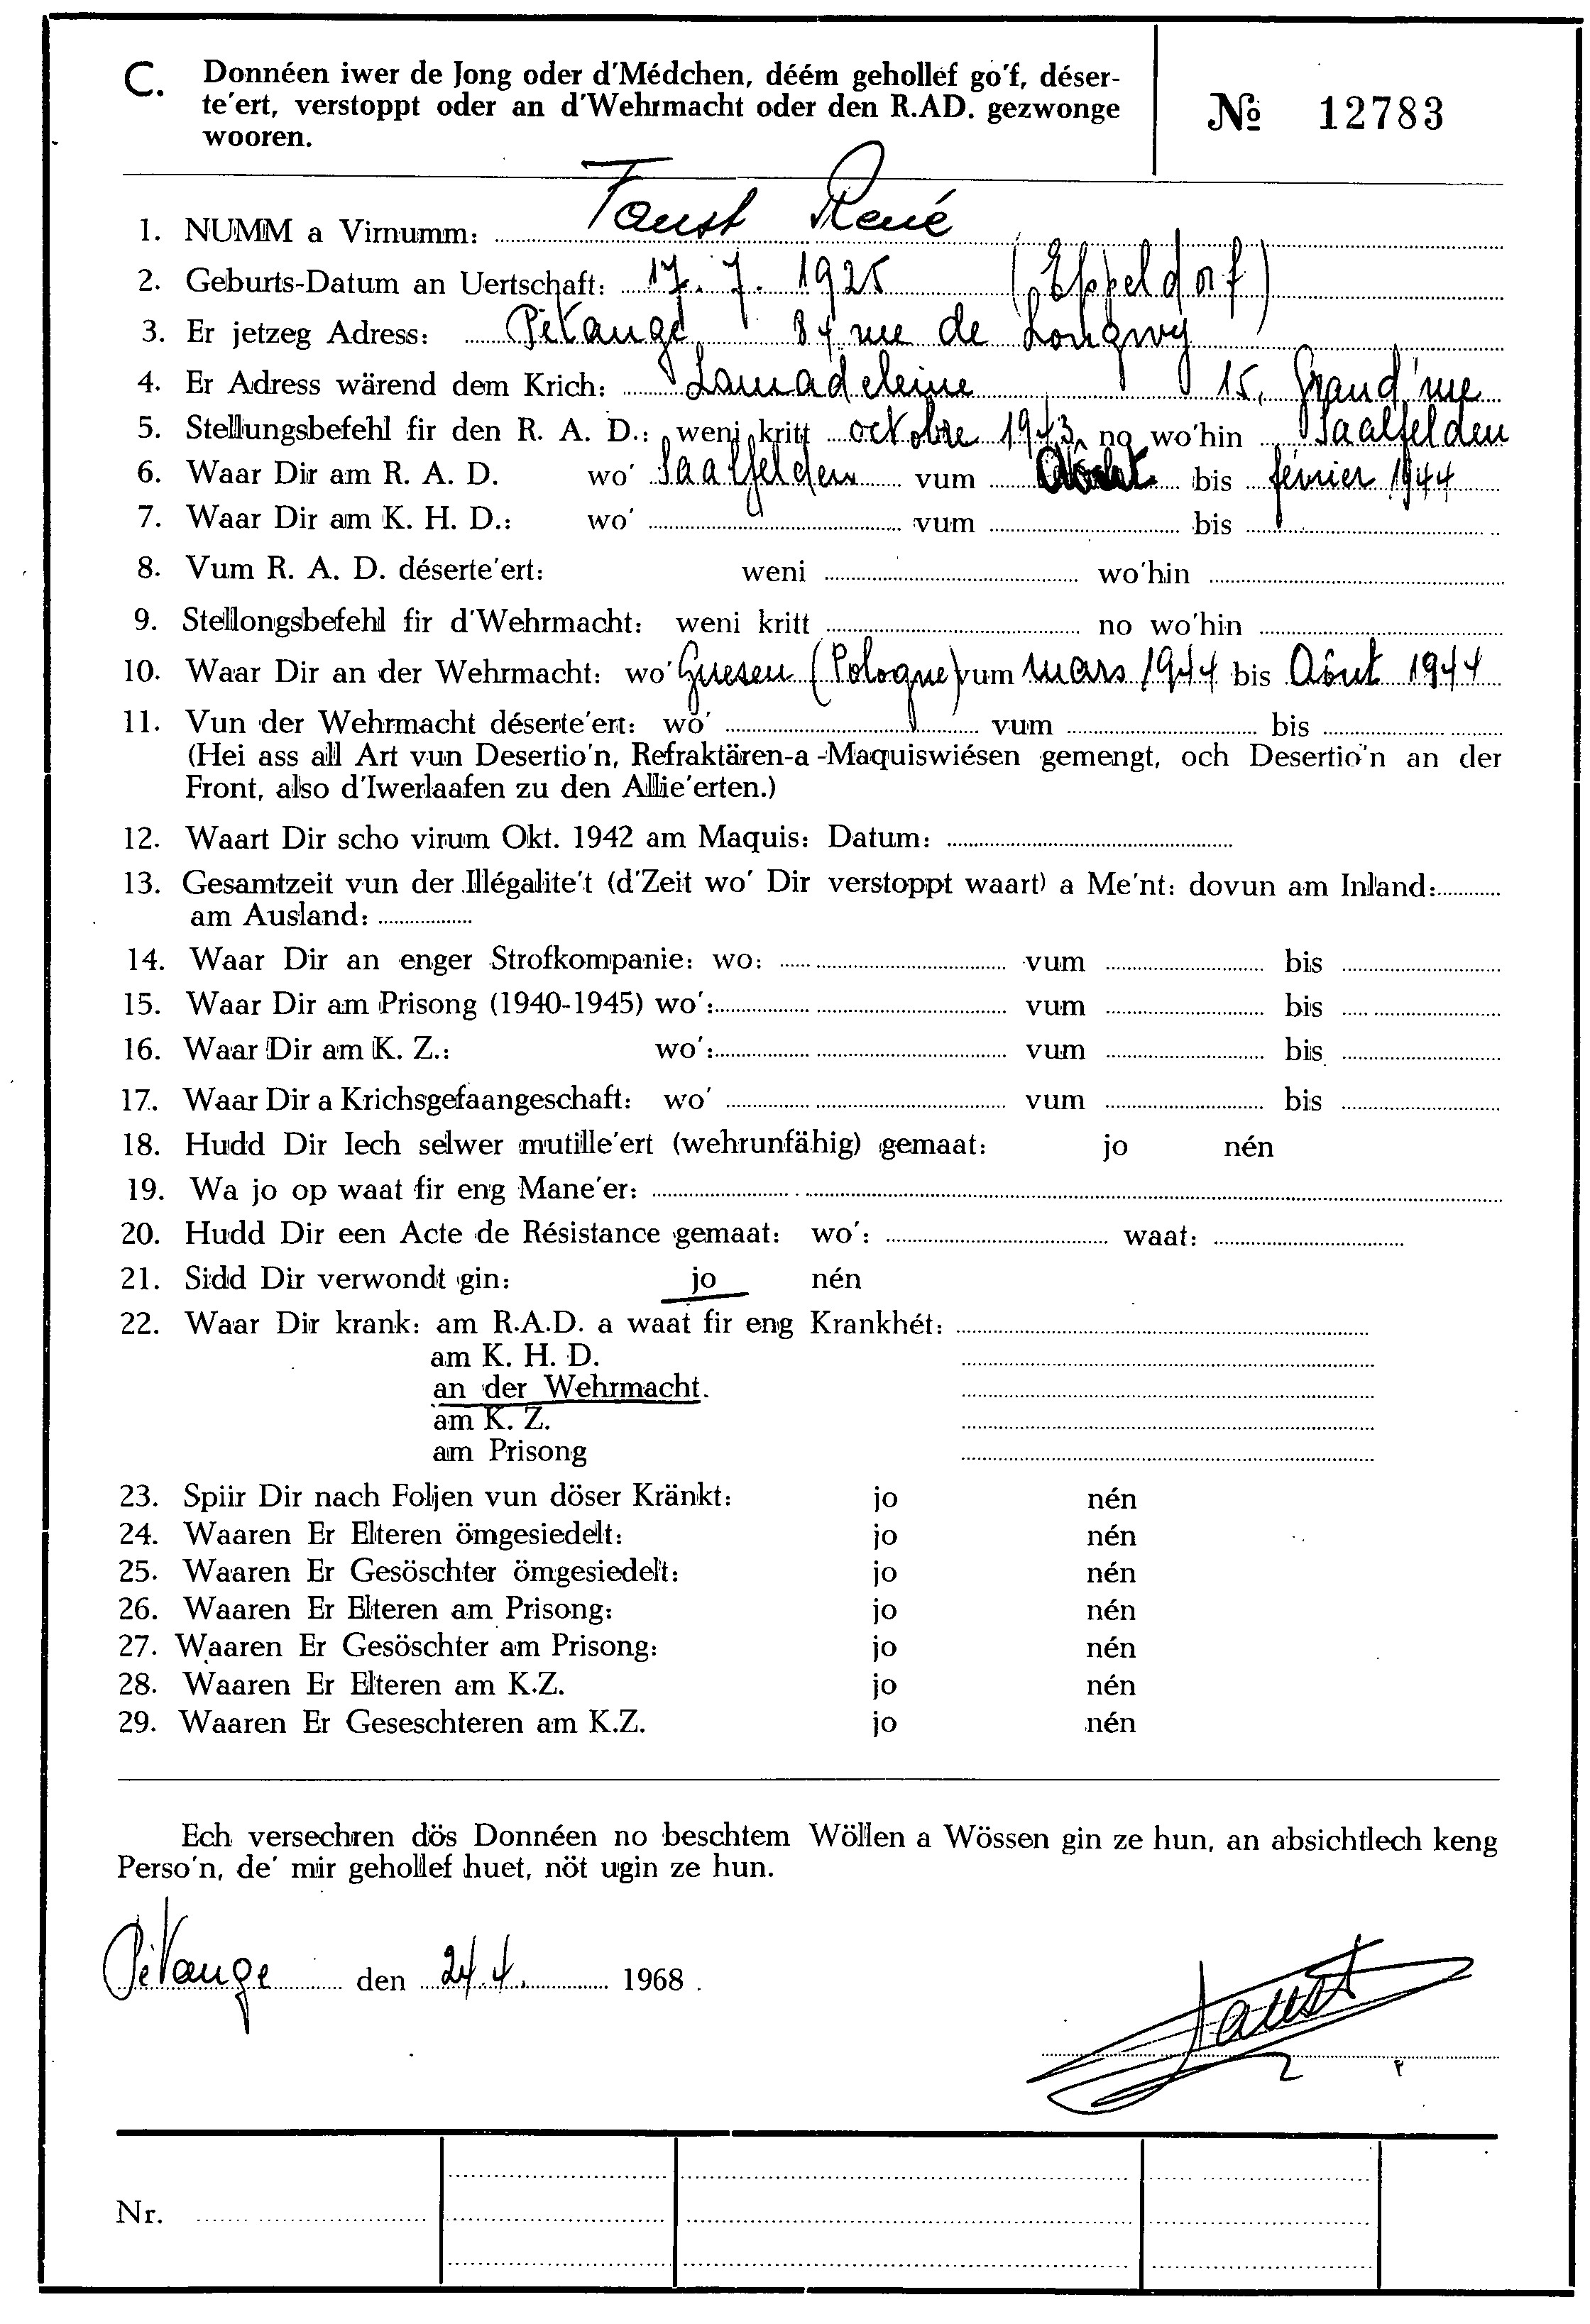 C. Donnéen iwer de Jong oder d'Médchen, déém gehollef go'f, déser-
te'ert, verstoppt oder an d'Wehrmacht oder den R.AD. gezwonge
wooren.
№ 12783
1. NUMM a Virnumm: Faust René
2. Geburts-Datum an Uertschaft: 17. 7. 1925 (Eppeldorf)
3. Er jetzeg Adress: Pétange 84 rue de Longwy
4. Er Adress wärend dem Krich: Lamadeleine 15, Grand'rue
5. Stellungsbefehl fir den R. A. D.: weni kritt octobre 1943 no wo'hin Saalfelden
6. Waar Dir am R. A. D. wo' Saalfelden vum bis février 1944
7. Waar Dir am K. H. D.: wo' vum bis
8. Vum R. A. D. déserte'ert: weni wo'hin
9. Stellongsbefehl fir d'Wehrmacht: weni kritt no wo'hin
10. Waar Dir an der Wehrmacht: wo' Gnesen (Pologne) vum mars 1944 bis Aôut 1944
11. Vun der Wehrmacht déserte'ert: wo' vum bis
(Hei ass all Art vun Desertio'n, Refraktären-a-Maquiswiésen gemengt, och Desertio'n an der
Front, also d'Iwerlaafen zu den Allie'erten.)
12. Waart Dir scho virum Okt. 1942 am Maquis: Datum:
13. Gesamtzeit vun der Illégalite't (d'Zeit wo' Dir verstoppt waart) a Me'nt: dovun am Inland:
am Ausland:
14. Waar Dir an enger Strofkompanie: wo: vum bis
15. Waar Dir am Prisong (1940-1945) wo': vum bis
16. Waar Dir am K. Z.: wo': vum bis
17. Waar Dir a Krichsgefaangeschaft: wo' vum bis
18. Hudd Dir Iech selwer mutille'ert (wehrunfähig) gemaat: jo nén
19. Wa jo op waat fir eng Mane'er:
20. Hudd Dir een Acte de Résistance gemaat: wo': waat:
21. Sidd Dir verwondt gin: jo nén
22. Waar Dir krank: am R.A.D. a waat fir eng Krankhét:
am K. H. D.
an der Wehrmacht.
am K. Z.
am Prisong
23. Spiir Dir nach Foljen vun döser Kränkt: jo nén
24. Waaren Er Elteren ömgesiedelt: jo nén
25. Waaren Er Gesöschter ömgesiedelt: jo nén
26. Waaren Er Elteren am Prisong: jo nén
27. Waaren Er Gesöschter am Prisong: jo nén
28. Waaren Er Elteren am K.Z. jo nén
29. Waaren Er Geseschteren am K.Z. jo nén
Ech versechren dös Donnéen no beschtem Wöllen a Wössen gin ze hun, an absichtlech keng
Perso'n, de' mir gehollef huet, nöt ugin ze hun.
Pétange den 24.4. 1968.
Faust
Nr.